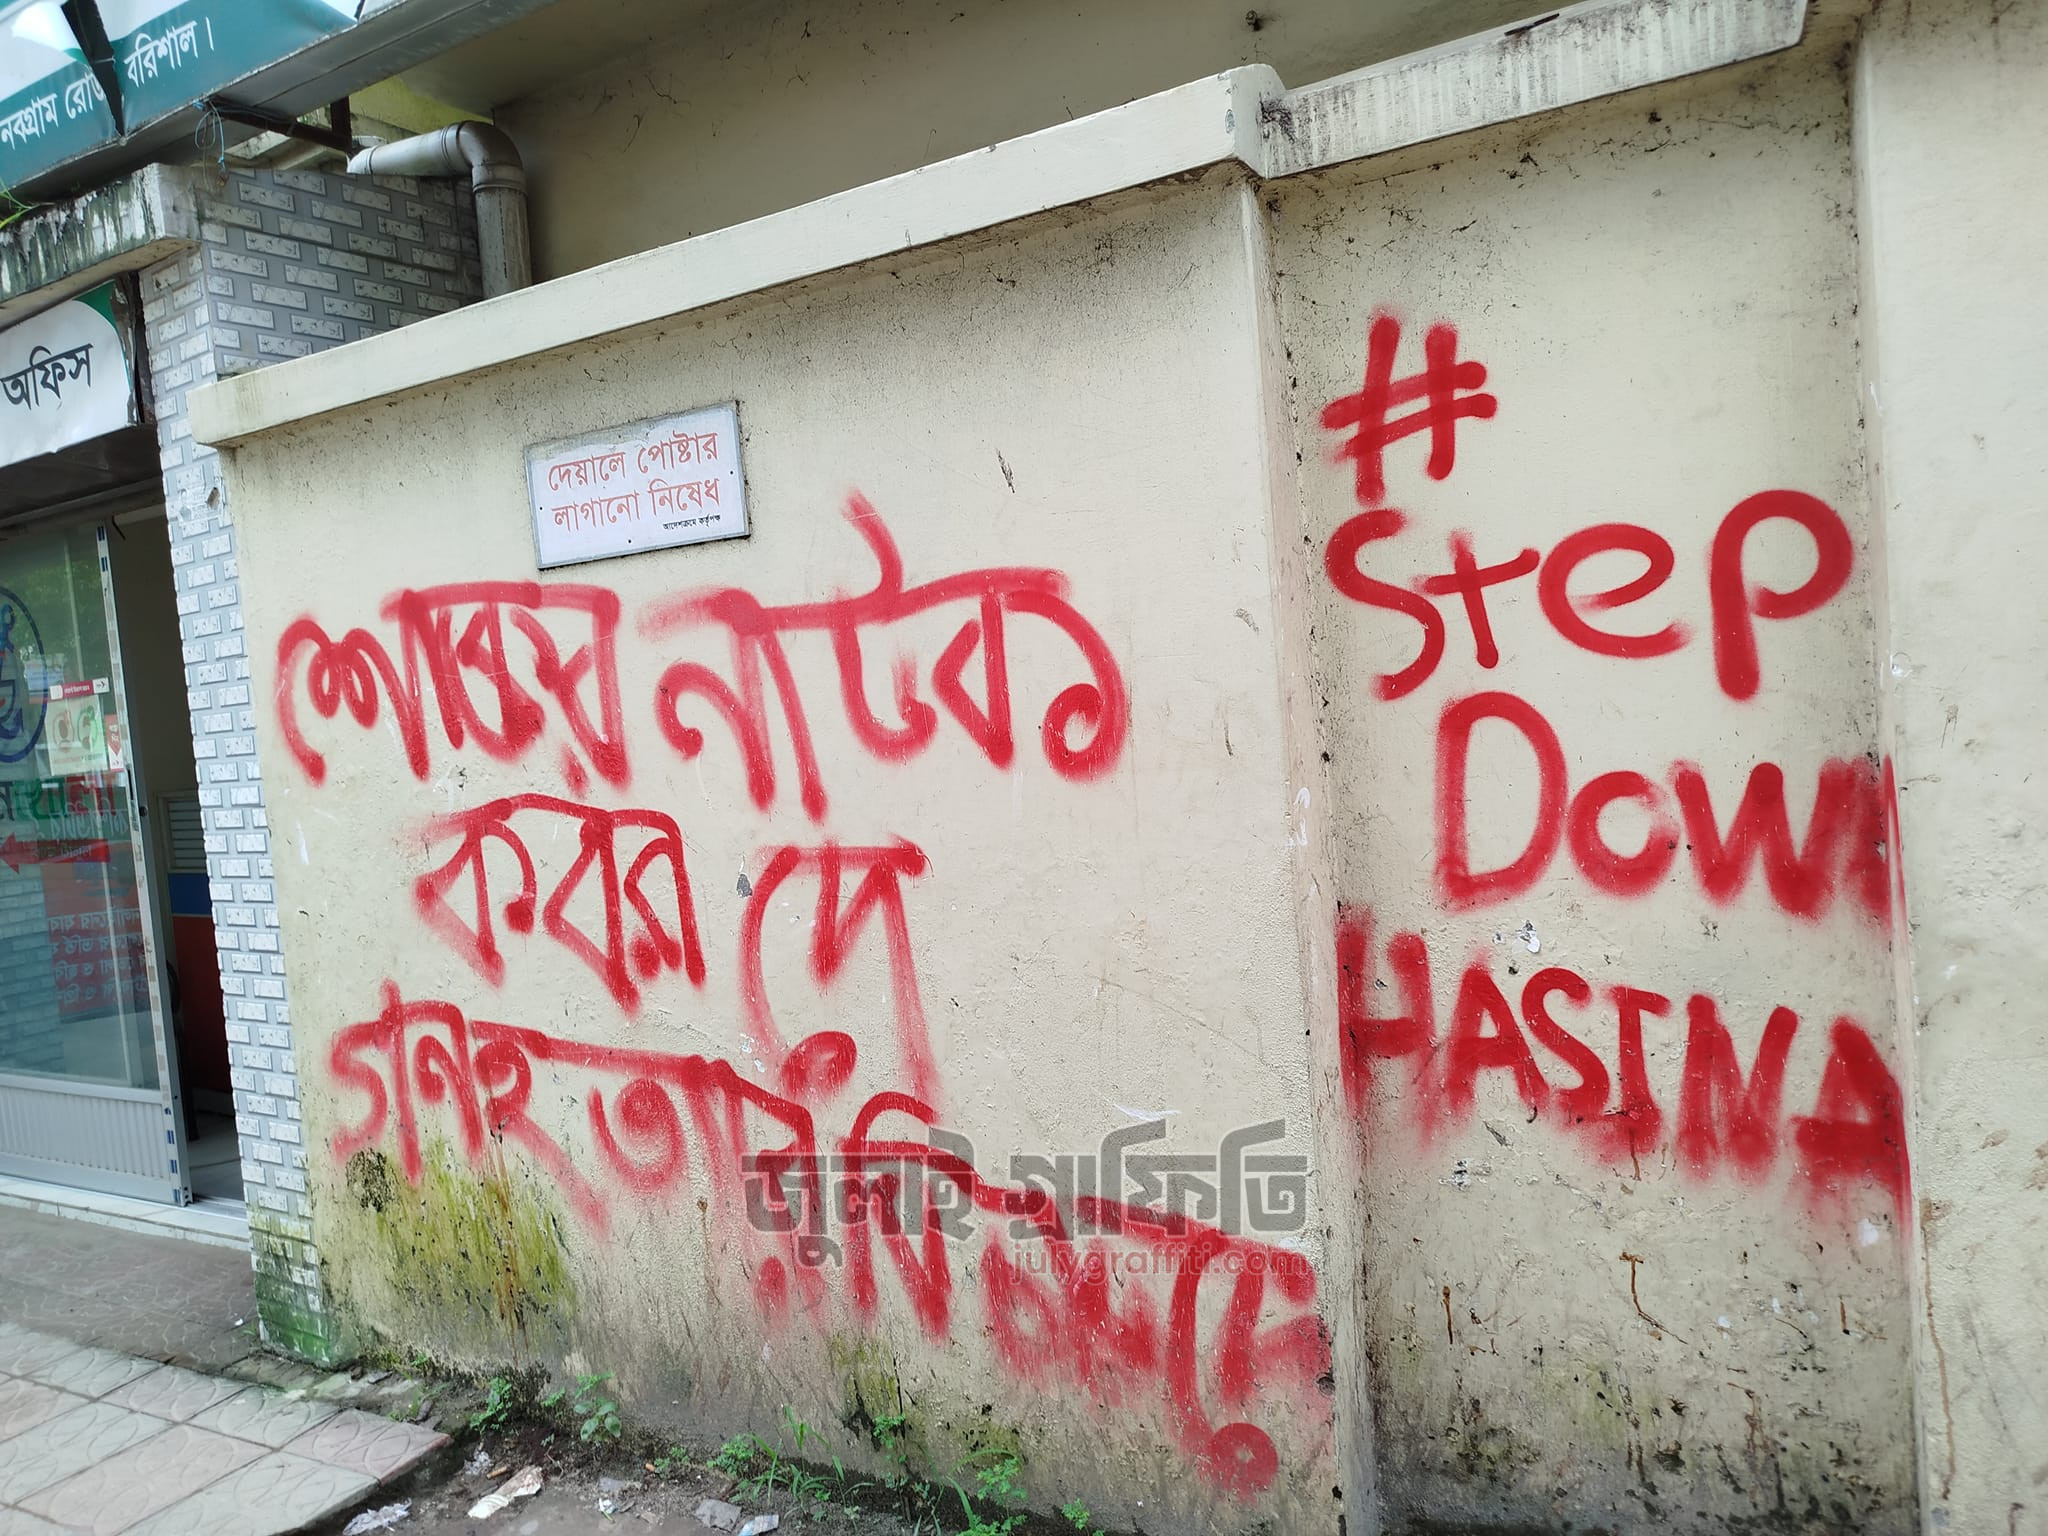 নবগ্রাম রোড বরিশাল।
অফিস
দেয়ালে পোষ্টার
লাগানো নিষেধ
আদেশক্রমে কর্তৃপক্ষ
শোকের নাটক
কবর দে
গনহত্যার
#
Step
Down
HASINA
জুলাই গ্রাফিতি
julygraffiti.com